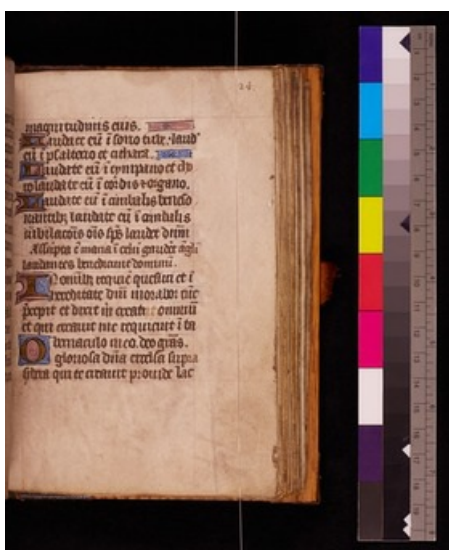 24.
magnitudinis eius.
Laudate eū ī sono tube. laud
eū ī psalterio et cithara.
Laudate eū ī tympano et cho
ro laudate eū ī cordis & organo.
Laudate eū ī cimbalis beneso
nantibꝫ laudate eū ī cimbalis
iubilacōis oīs sp̄s laudet dn̄m
Assupta ē maria ī celū gaudēt āgli
laudantes benedicunt dominū.
In omnibꝫ requiē quesiui et ī
hereditate dn̄i morabor tūc
precepit et dixit m̄ creator omniū
et qui creauit me requieuit ī ta
bernaculo meo. deo grās.
O gloriosa dn̄a excelsa supra
sidera qui te creauit prouide lac